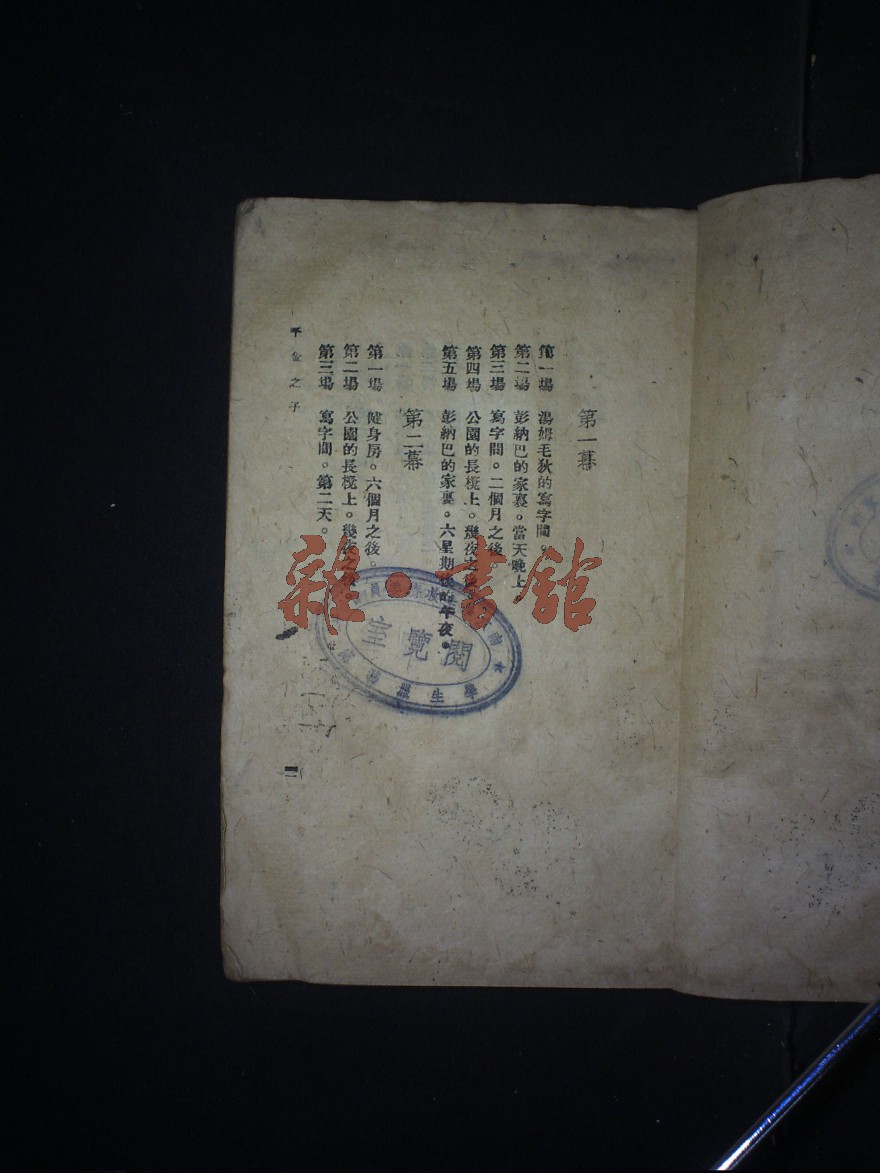 第一幕
第一場　湯姆毛狄的寫字間。
第二場　彭納巴的家裏。當天晚上
第三場　寫字間。二個月之後
第四場　公園的長櫈上。幾夜之後
第五場　彭納巴的家裏。六星期後的午夜。
第二幕
第一場　健身房。六個月之後。
第二場　公園的長櫈上。幾夜之後。
第三場　寫字間。第二天。
千金之子
一
雜·書館
閱覽室
學生